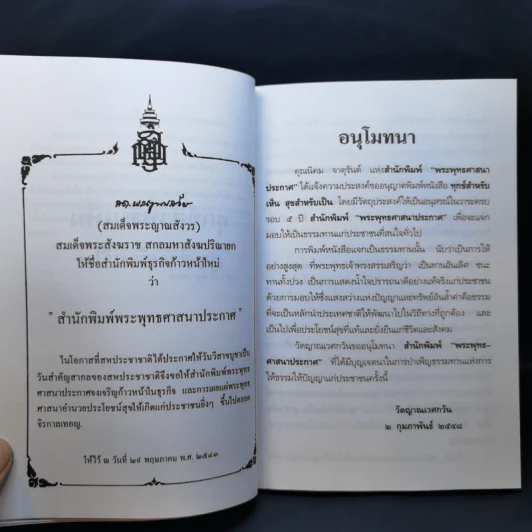 (สมเด็จพระญาณสังวร)
สมเด็จพระสังฆราช สกลมหาสังฆปริณายก
ให้ชื่อสำนักพิมพ์ธุรกิจก้าวหน้าใหม่
ว่า
" สำนักพิมพ์พระพุทธศาสนาประกาศ "
ในโอกาสที่สหประชาชาติได้ประกาศให้วันวิสาขบูชาเป็น
วันสำคัญสากลของสหประชาชาติจึงขอให้สำนักพิมพ์พระพุทธ
ศาสนาประกาศจงเจริญก้าวหน้าในธุรกิจ และการเผยแผ่พระพุทธ
ศาสนาอำนวยประโยชน์สุขให้เกิดแก่ประชาชนยิ่งๆ ขึ้นไปตลอด
จิรกาลเทอญ.
ให้ไว้ ณ วันที่ ๒๙ พฤษภาคม พ.ศ. ๒๕๔๓
อนุโมทนา
คุณนิคม จาตุรันต์ แห่งสำนักพิมพ์ "พระพุทธศาสนา
ประกาศ" ได้แจ้งความประสงค์ขออนุญาตพิมพ์หนังสือ ทุกข์สำหรับ
เห็น สุขสำหรับเป็น โดยมีวัตถุประสงค์ให้เป็นอนุสรณ์ในวาระครบ
รอบ ๕ ปี สำนักพิมพ์ "พระพุทธศาสนาประกาศ" เพื่อจะแจก
มอบให้เป็นธรรมทานแก่ประชาชนที่สนใจทั่วไป
การพิมพ์หนังสือแจกเป็นธรรมทานนั้น นับว่าเป็นการให้
อย่างสูงสุด ที่พระพุทธเจ้าทรงสรรเสริญว่า เป็นทานอันเลิศ ชนะ
ทานทั้งปวง เป็นการแสดงน้ำใจปรารถนาดีอย่างแท้จริงแก่ประชาชน
ด้วยการมอบให้ซึ่งแสงสว่างแห่งปัญญาและทรัพย์อันล้ำค่าคือธรรม
ที่จะเป็นหลักนำประเทศชาติให้พัฒนาไปในวิถีทางที่ถูกต้อง และ
เป็นไปเพื่อประโยชน์สุขที่แท้และยั่งยืนแก่ชีวิตและสังคม
วัดญาณเวศกวันขออนุโมทนา สำนักพิมพ์ "พระพุทธ-
ศาสนาประกาศ" ที่ได้มีบุญเจตนาในการบำเพ็ญธรรมทานแห่งการ
ให้ธรรมให้ปัญญาแก่ประชาชนครั้งนี้
วัดญาณเวศกวัน
๒ กุมภาพันธ์ ๒๕๔๘